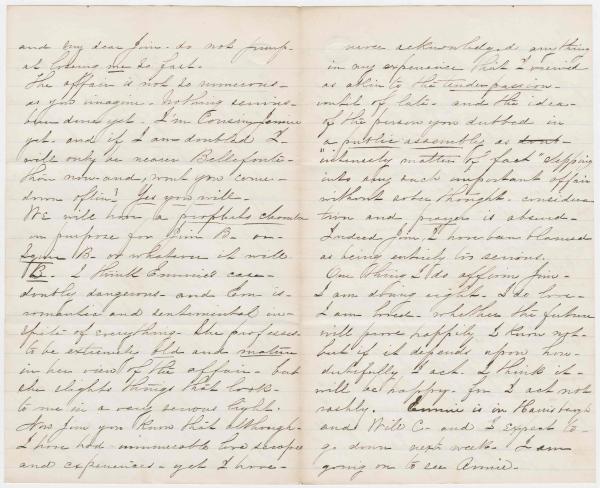 and my dear Jim - do not jump -
at losing me so fast.
The affair is not so numerous -
as you imagine - nothing serious -
been done yet. I'm Cousin Jennie
yet - and if I am doubled I -
will only be nearer Bellefonte -
than now - and, wont you come -
down often? Yes you will -
We will have a prophets chamber
on purpose for Jim B - or -
B - or whatever it will
B. I think Emmie's case -
doubly dangerous - and Em is -
romantic and sentimental in -
spite of everything - She professes -
to be extremely old and mature
in her view of the affair - but
she slights things that look -
to me in a very serious light.
Jim you know that although -
I have had innumerable love scrapes
and experiences - yet I have -
never acknowledged anything
in my experience that I viewed
as akin to the tender passion -
until of late - and the idea -
of the person you dubbed in
a public assembly as
"intensely matter of fact" slipping
into any such important affair
without sober thought - considera
tion and prayer is absurd -
Indeed Jim, I have been blamed
as being entirely too serious.
One thing I do affirm Jim -
I am doing right - I do love -
I am loved - whether the future
will prove happily I know not -
but if it depends upon how -
dutifully I act - I think it -
will be happy - for I act not
rashly. Annie is in Harrisburgh
and Will C - and I expect to -
go down next week - I am
going on to see Annie -